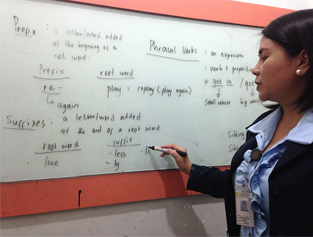 Prefix : a letter/word added
at the begining of a
root word.
Prefix root word
re- play = replay (play again)
↳ again
Suffixes : a letter/word added
at the end of a root word
root word suffix
love -less
- ly
Phrasal Verbs = an expression
= verb + preposition
* get in /
small vehicle big